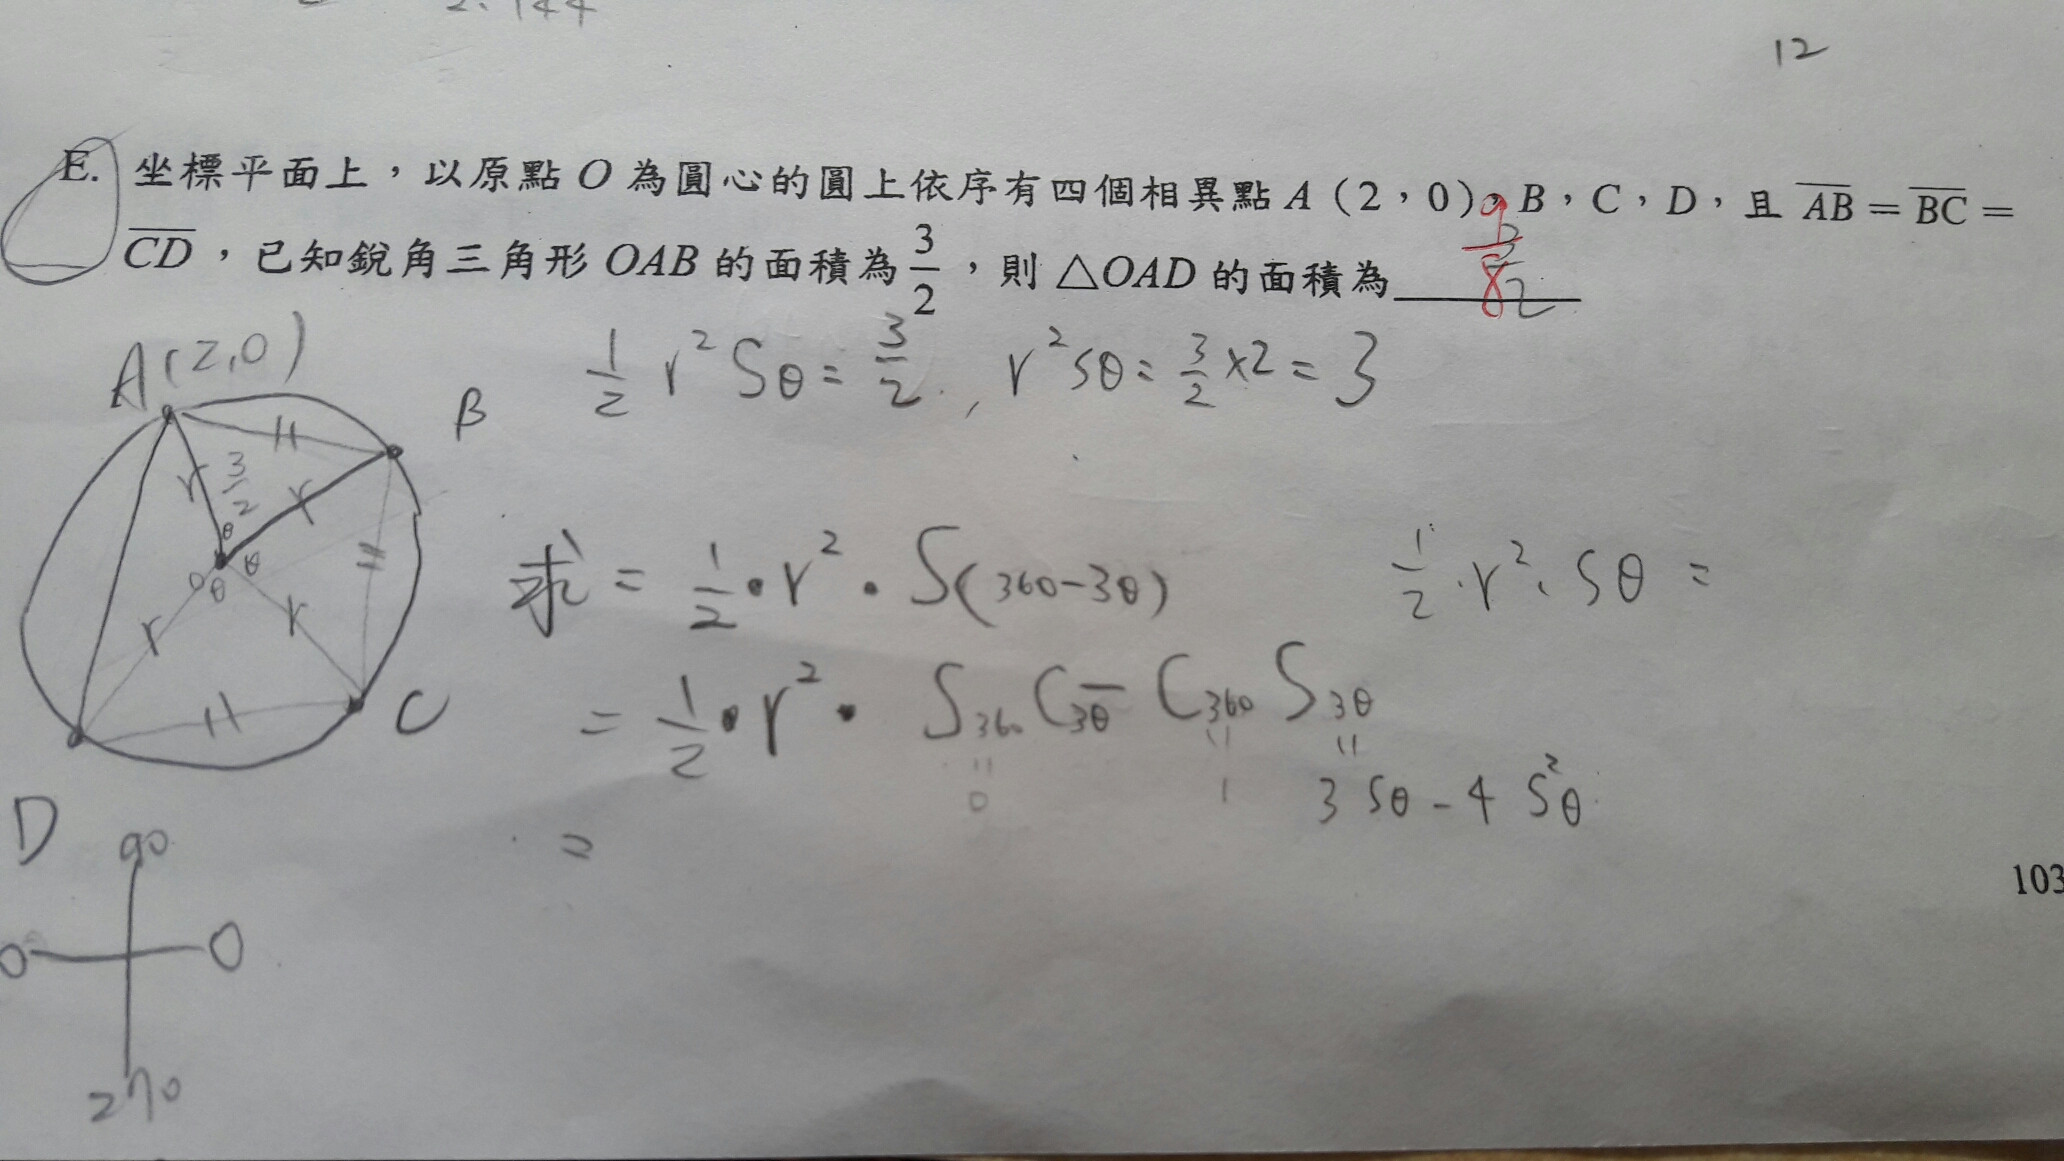 12
E. 坐標平面上，以原點 O 為圓心的圓上依序有四個相異點 A（2，0），B，C，D，且 AB＝BC＝
CD，已知銳角三角形 OAB 的面積為 3/2，則 △OAD 的面積為
9/8
A(2,0)
B
1/2 r² Sθ = 3/2 , r²sθ = 3/2 × 2 = 3
r 3/2 r
θ
O θ θ
r r
C
D
求 = 1/2 · r² · S(360-3θ)
1/2 · r² · Sθ =
= 1/2 · r² · S360 C3θ - C360 S3θ
0 1 3 Sθ - 4 S²θ
=
90
0 0
270
103